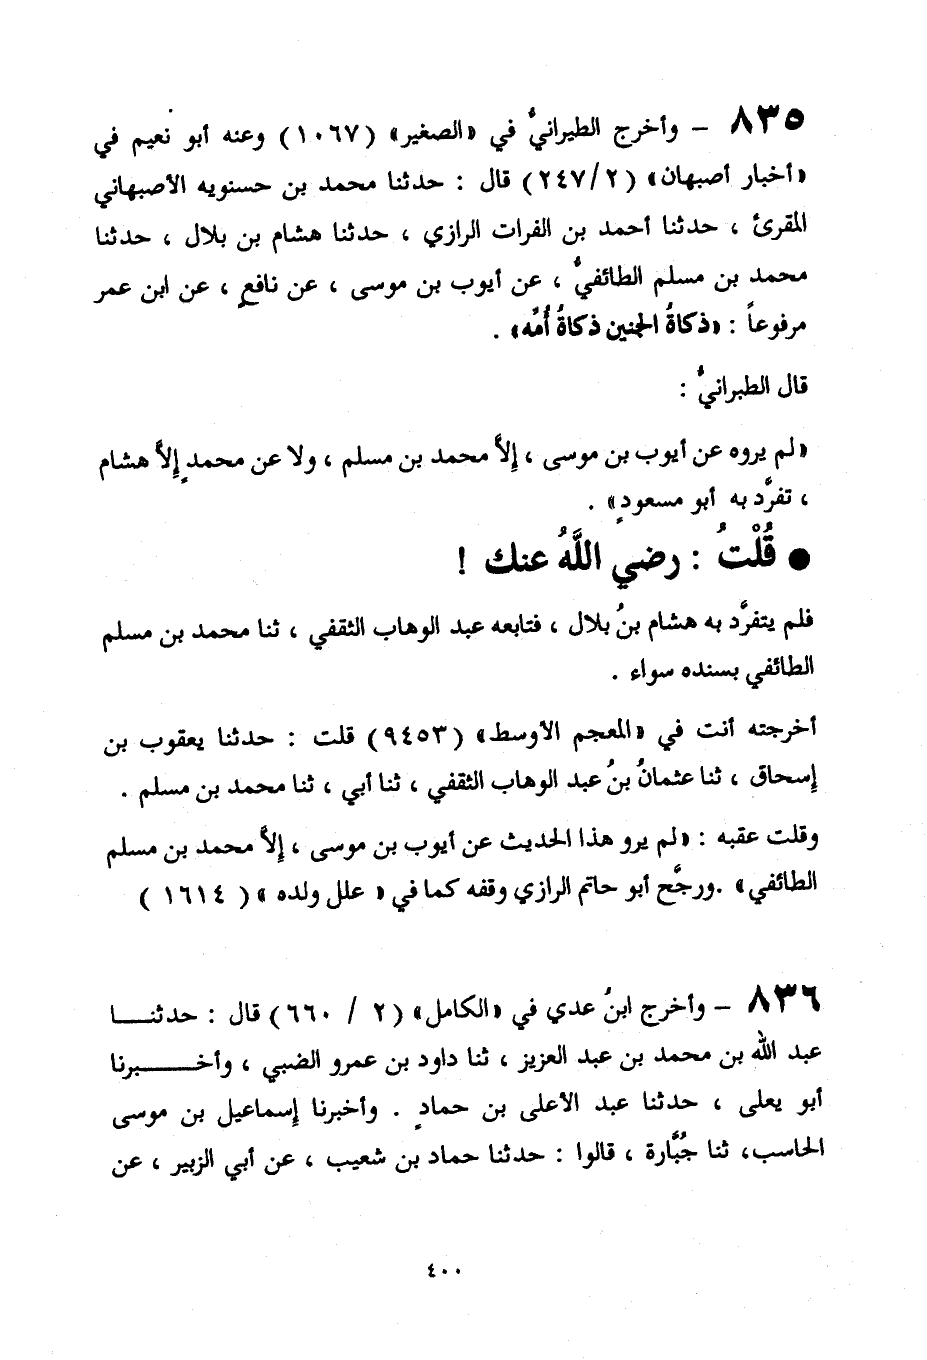 ٨٣٥ – وأخرج الطبرانيُّ في «الصغير» (١٠٦٧) وعنه أبو نعيم في
«أخبار أصبهان» (٢٤٧/٢) قال : حدثنا محمد بن حسنويه الأصبهاني
المقرئ ، حدثنا أحمد بن الفرات الرازي ، حدثنا هشام بن بلال ، حدثنا
محمد بن مسلم الطائفيُّ ، عن أيوب بن موسى ، عن نافعٍ ، عن ابن عمر
مرفوعاً : «ذكاةُ الجنين ذكاةُ أُمِّه» .
قال الطبرانيُّ :
«لم يروه عن أيوب بن موسى ، إلاَّ محمد بن مسلم ، ولا عن محمدٍ إلاَّ هشام
، تفرَّد به أبو مسعودٍ» .
● قُلْتُ : رضي اللَّهُ عنك !
فلم يتفرَّد به هشام بنُ بلال ، فتابعه عبد الوهاب الثقفي ، ثنا محمد بن مسلم
الطائفي بسنده سواء .
أخرجته أنت في «المعجم الأوسط» (٩٤٥٣) قلت : حدثنا يعقوب بن
إسحاق ، ثنا عثمانُ بنُ عبد الوهاب الثقفي ، ثنا أبي ، ثنا محمد بن مسلم .
وقلت عقبه : «لم يرو هذا الحديث عن أيوب بن موسى ، إلاَّ محمد بن مسلم
الطائفي» .ورجَّح أبو حاتم الرازي وقفه كما في « علل ولده » ( ١٦١٤ )
٨٣٦ – وأخرج ابنُ عدي في «الكامل» (٢ / ٦٦٠) قال : حدثنـــا
عبد الله بن محمد بن عبد العزيز ، ثنا داود بن عمرو الضبي ، وأخـــــبرنا
أبو يعلى ، حدثنا عبد الأعلى بن حمادٍ . وأخبرنا إسماعيل بن موسى
الحاسب، ثنا جُبَّارة ، قالوا : حدثنا حماد بن شعيب ، عن أبي الزبير ، عن
٤٠٠